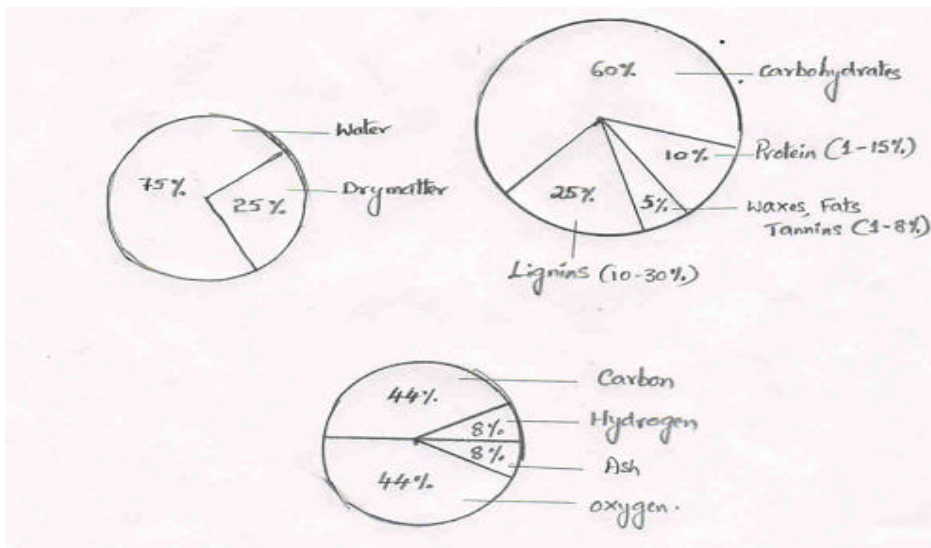 Water
75%
Drymatter
25%
60%
Carbohydrates
10%
Protein (1-15%)
5%
Waxes, Fats
Tannins (1-8%)
25%
Lignins (10-30%)
Carbon
44%
Hydrogen
8%
8%
Ash
44%
oxygen.